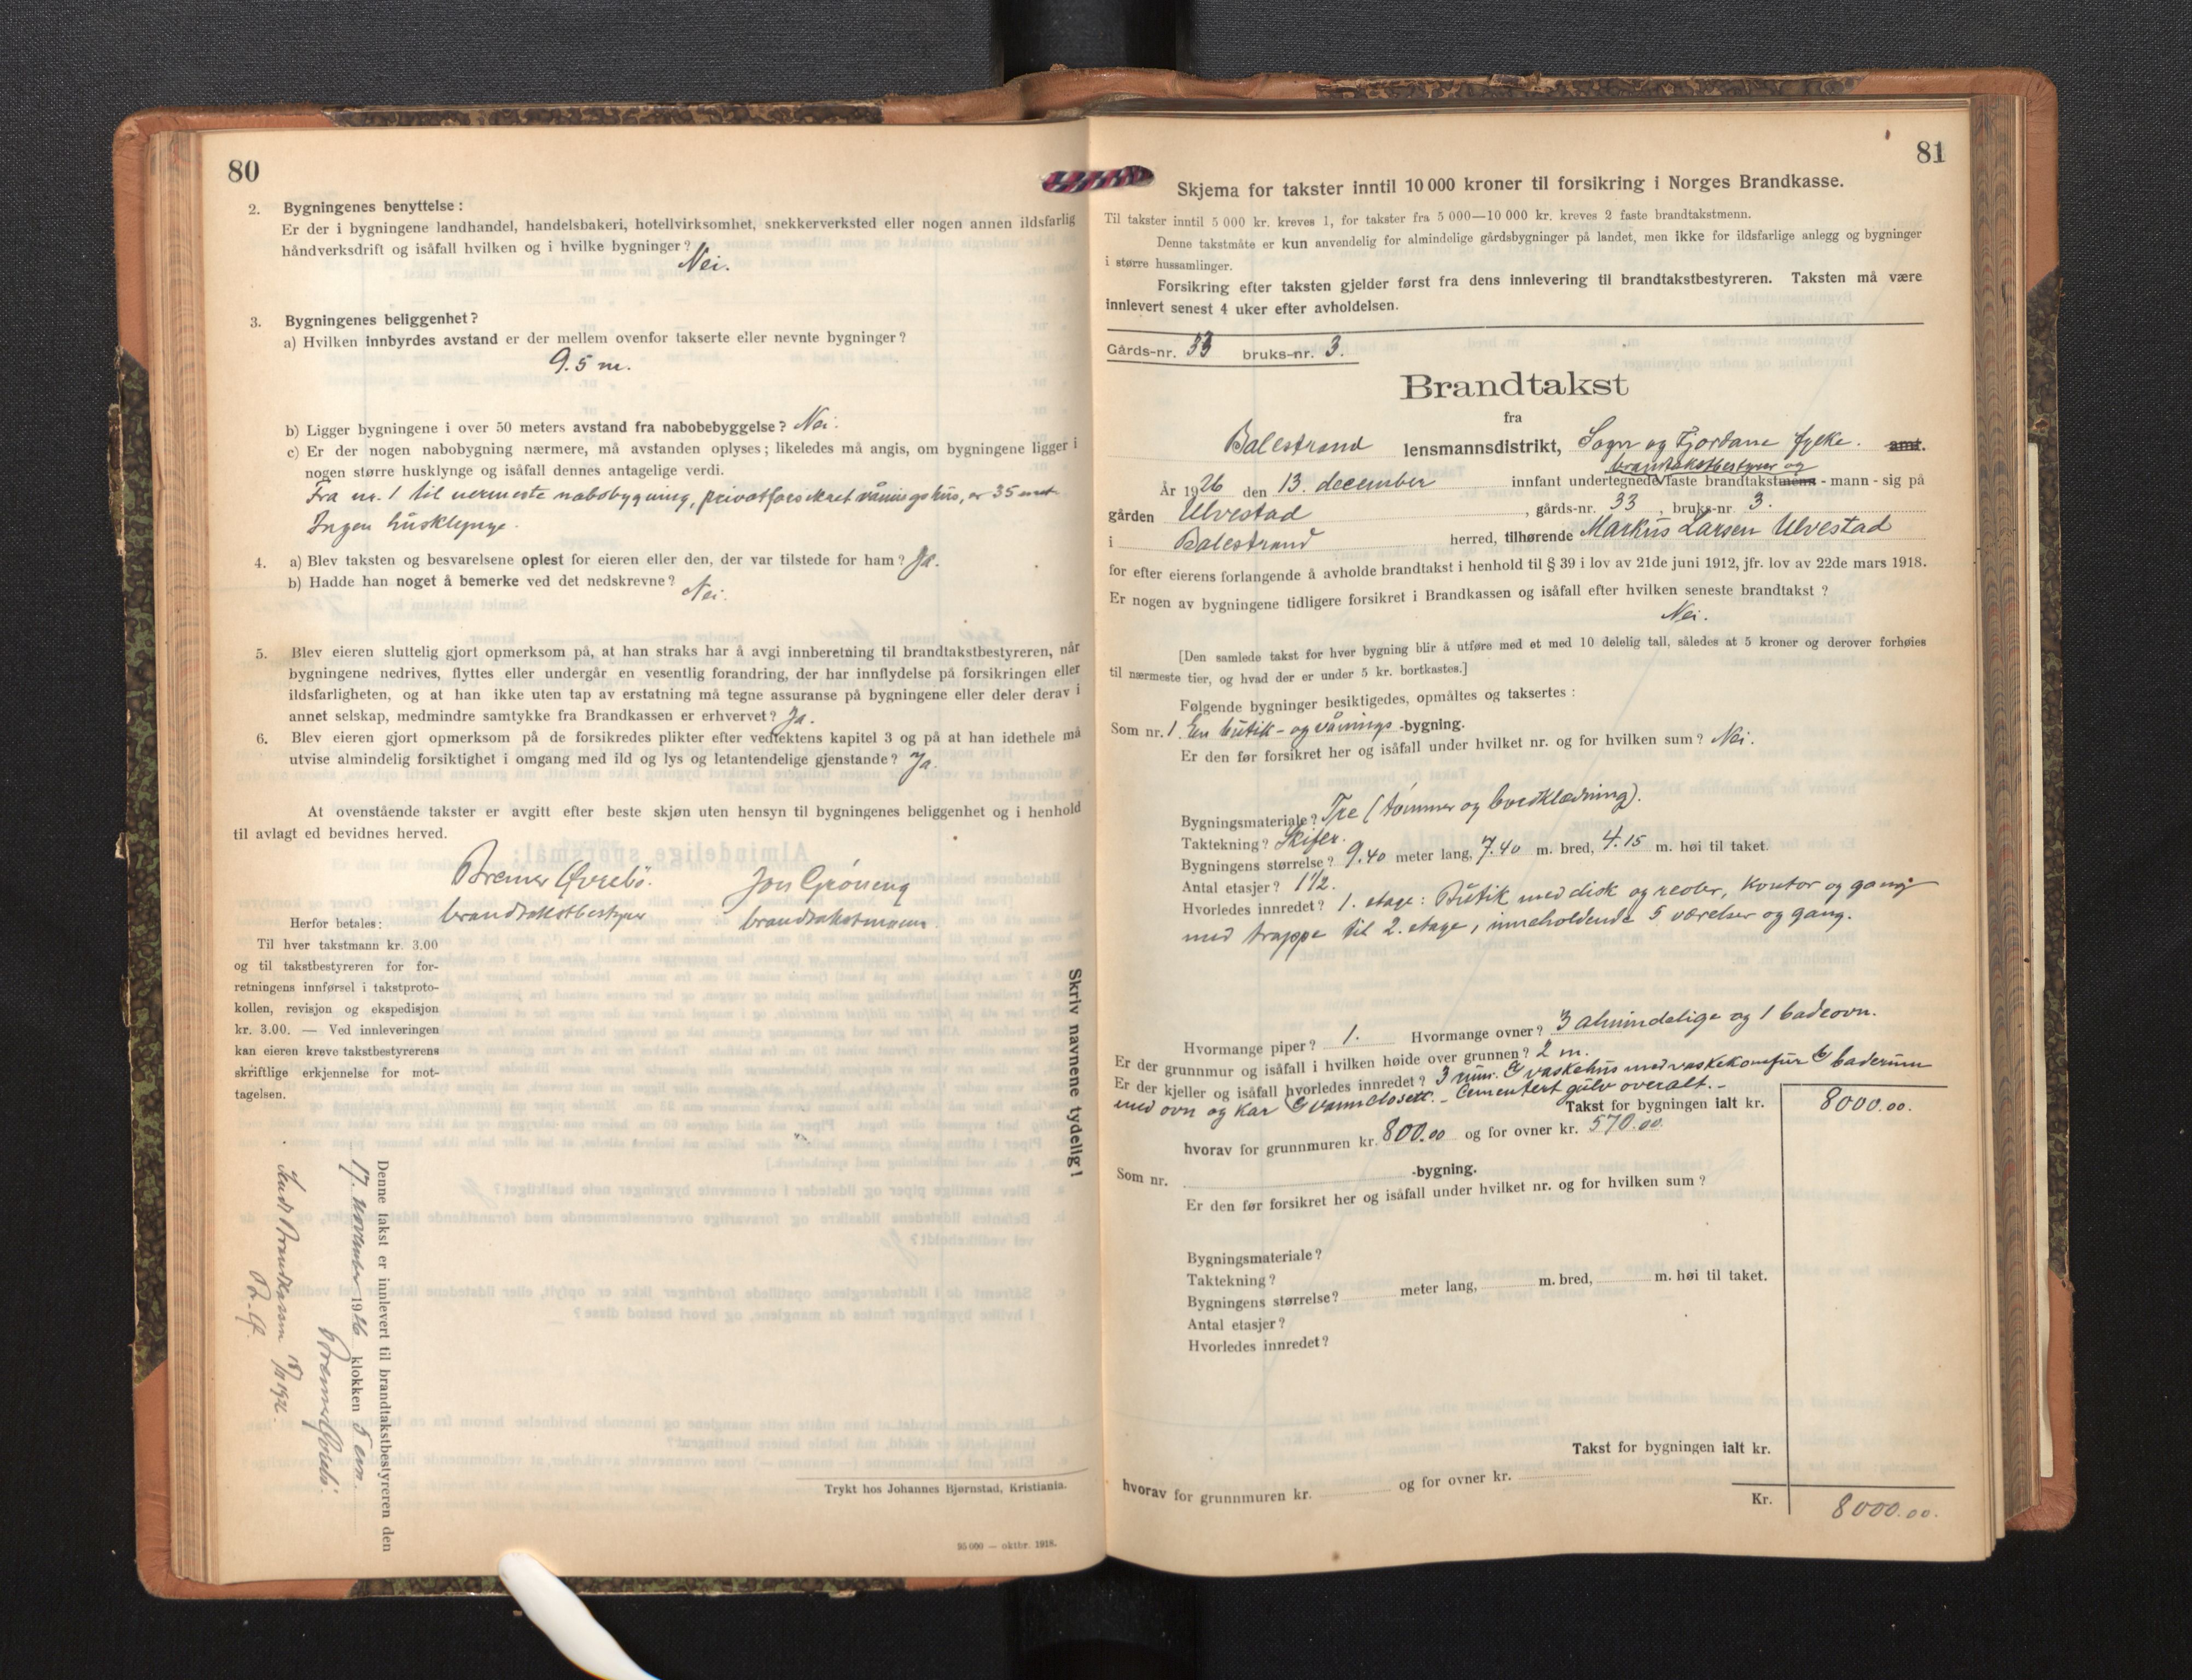 80
2. Bygningenes benyttelse :
Er der i bygningene landhandel, handelsbakeri, hotellvirksomhet, snekkerverksted eller nogen annen ildsfarlig
håndverksdrift og isåfall hvilken og i hvilke bygninger?
Nei.
3. Bygningenes beliggenhet?
a) Hvilken innbyrdes avstand er der mellem ovenfor takserte eller nevnte bygninger?
9.5 m.
b) Ligger bygningene i over 50 meters avstand fra nabobebyggelse? Nei.
c) Er der nogen nabobygning nærmere, må avstanden oplyses; likeledes må angis, om bygningene ligger i
nogen større husklynge og isåfall dennes antagelige verdi.
Fra nr. 1 til nermeste nabobygning, privatforsikret våningshus, er 35 met.
Ingen husklynge.
4. a) Blev taksten og besvarelsene oplest for eieren eller den, der var tilstede for ham? Ja.
b) Hadde han noget å bemerke ved det nedskrevne?
Nei.
5. Blev eieren sluttelig gjort opmerksom på, at han straks har å avgi innberetning til brandtakstbestyreren, når
bygningene nedrives, flyttes eller undergår en vesentlig forandring, der har innflydelse på forsikringen eller
ildsfarligheten, og at han ikke uten tap av erstatning må tegne assuranse på bygningene eller deler derav i
annet selskap, medmindre samtykke fra Brandkassen er erhvervet? Ja.
6. Blev eieren gjort opmerksom på de forsikredes plikter efter vedtektens kapitel 3 og på at han idethele må
utvise almindelig forsiktighet i omgang med ild og lys og letantendelige gjenstande? Ja.
At ovenstående takster er avgitt efter beste skjøn uten hensyn til bygningenes beliggenhet og i henhold
til avlagt ed bevidnes herved.
Bremer Øvrebö. Jon Gröneng
brandtakstbestyrer brandtakstmann.
Herfor betales:
Til hver takstmann kr. 3.00
og til takstbestyreren for for-
retningens innførsel i takstproto-
kollen, revisjon og ekspedisjon
kr. 3.00. — Ved innleveringen
kan eieren kreve takstbestyrerens
skriftlige erkjennelse for mot-
tagelsen.
Skriv navnene tydelig!
Denne takst er innlevert til brandtakstbestyreren den
17. november 1926 klokken 5 em.
Bremer Øvrebö.
Sendt Brandkassen 18/11 1926.
Trykt hos Johannes Bjørnstad, Kristiania.
95 000 — oktbr. 1918.
81
Skjema for takster inntil 10 000 kroner til forsikring i Norges Brandkasse.
Til takster inntil 5 000 kr. kreves 1, for takster fra 5 000—10 000 kr. kreves 2 faste brandtakstmenn.
Denne takstmåte er kun anvendelig for almindelige gårdsbygninger på landet, men ikke for ildsfarlige anlegg og bygninger
i større hussamlinger.
Forsikring efter taksten gjelder først fra dens innlevering til brandtakstbestyreren. Taksten må være
innlevert senest 4 uker efter avholdelsen.
Gårds-nr. 33 bruks-nr. 3.
Brandtakst
fra
Balestrand lensmannsdistrikt, Sogn og Fjordane fylke. amt.
brandtakstbestyrer og
År 1926 den 13. december innfant undertegnede faste brandtakstmenn - mann - sig på
gården Ulvestad, gårds-nr. 33, bruks-nr 3.
i Balestrand herred, tilhørende Markus Larsen Ulvestad
for efter eierens forlangende å avholde brandtakst i henhold til § 39 i lov av 21de juni 1912, jfr. lov av 22de mars 1918.
Er nogen av bygningene tidligere forsikret i Brandkassen og isåfall efter hvilken seneste brandtakst ?
Nei.
[Den samlede takst for hver bygning blir å utføre med et med 10 delelig tall, således at 5 kroner og derover forhøies
til nærmeste tier, og hvad der er under 5 kr. bortkastes.]
Følgende bygninger besiktigedes, opmåltes og taksertes :
Som nr. 1. En butik - og vånings -bygning.
Er den før forsikret her og isåfall under hvilket nr. og for hvilken sum? Nei.
Bygningsmateriale? Tre (tømmer og bordklædning).
Taktekning? Skifer.
Bygningens størrelse? 9.40 meter lang, 7.40 m. bred, 4.15 m. høi til taket.
Antal etasjer? 1½.
Hvorledes innredet? 1. etage: Butik med disk og reoler, kontor og gang
med trappe til 2. etage, inneholdende 5 værelser og gang.
Hvormange piper? 1. Hvormange ovner? 3 almindelige og 1 badeovn.
Er der grunnmur og isåfall i hvilken høide over grunnen? 2 m.
Er der kjeller og isåfall hvorledes innredet? 3 rum. vaskehus med vaskekomfur baderum
med ovn og kar vannclosett. - Cementert gulv overalt. -
Takst for bygningen ialt kr. 8000.00.
hvorav for grunnmuren kr. 800.00 og for ovner kr. 570.00
Som nr. -bygning.
Er den før forsikret her og isåfall under hvilket nr. og for hvilken sum ?
Bygningsmateriale?
Taktekning?
Bygningens størrelse? meter lang, m. bred, m. høi til taket.
Antal etasjer?
Hvorledes innredet?
Takst for bygningen ialt kr.
hvorav for grunnmuren kr. og for ovner kr.
Kr. 8000.00.